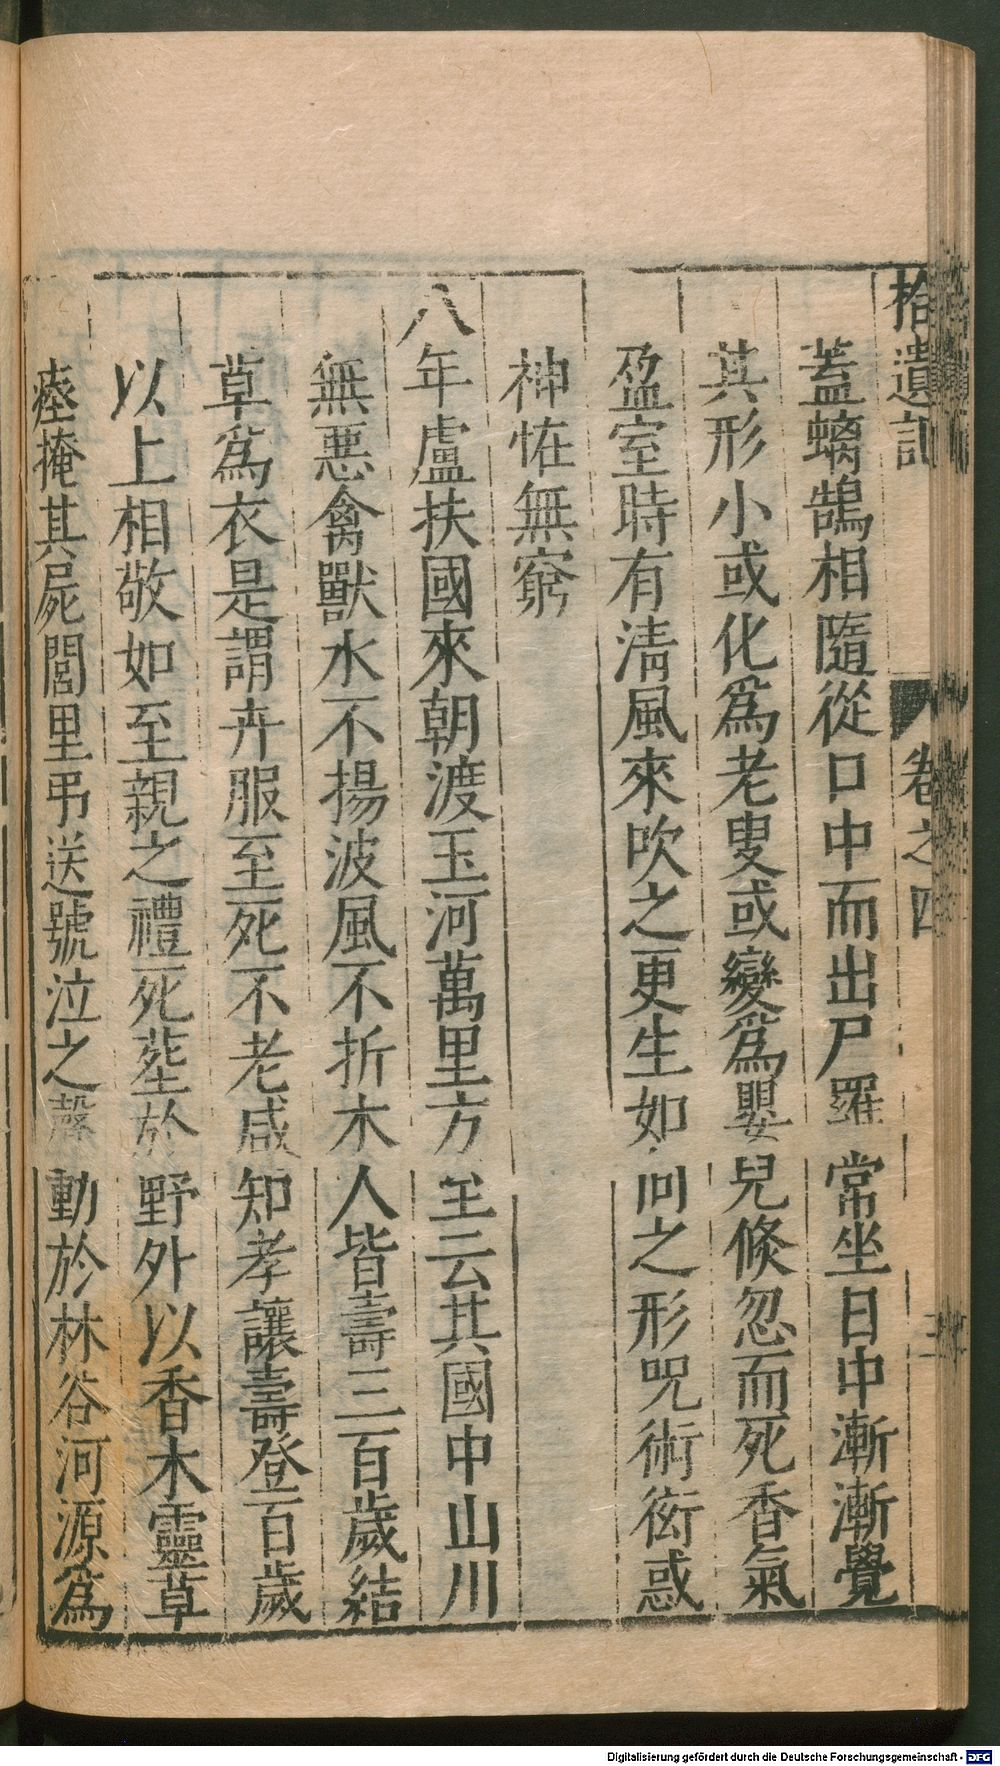 拾遺記 卷之四
蓋螭鵠相隨從口中而出尸羅常坐日中漸漸覺
其形小或化爲老叟或變爲嬰兒倐忽而死香氣
盈室時有清風來吹之更生如向之形咒術衒惑
神恠無窮
八年盧扶國來朝渡玉河萬里方至云其國中山川
無惡禽獸水不揚波風不折木人皆壽三百歲結
草爲衣是謂卉服至死不老咸知孝讓壽登百歲
以上相敬如至親之禮死塟於野外以香木靈草
瘞掩其屍閭里弔送號泣之聲動於林谷河源爲
Digitalisierung gefördert durch die Deutsche Forschungsgemeinschaft - DFG